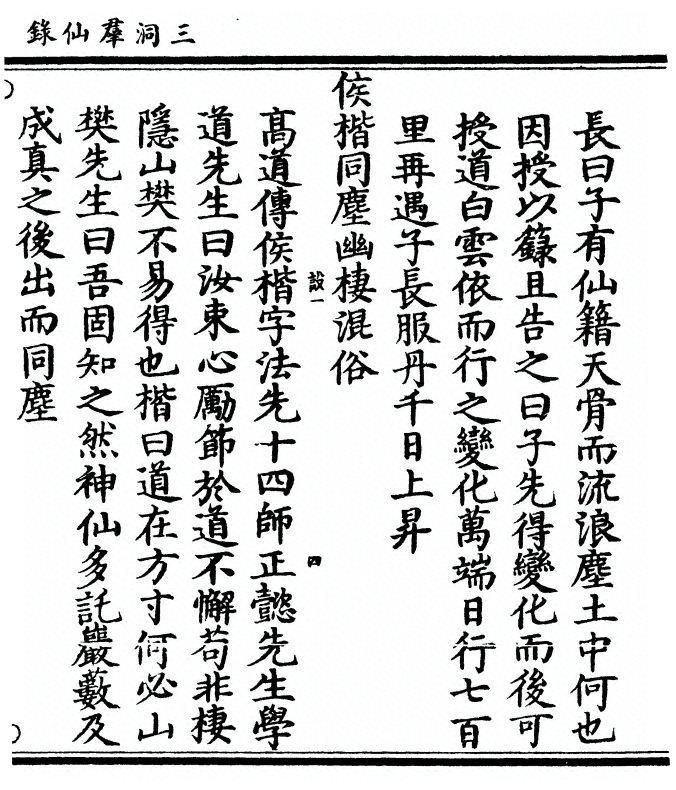 三洞羣仙錄
長曰子有仙籍天骨而流浪塵土中何也
因授以籙且告之曰子先得變化而後可
授道白雲依而行之變化萬端日行七百
里再遇子長服丹千日上昇
侯楷同塵幽棲混俗
設一
四
高道傳侯楷字法先十四師正懿先生學
道先生曰汝束心勵節於道不懈苟非棲
隱山樊不易得也楷曰道在方寸何必山
樊先生曰吾固知之然神仙多託巖藪及
成真之後出而同塵